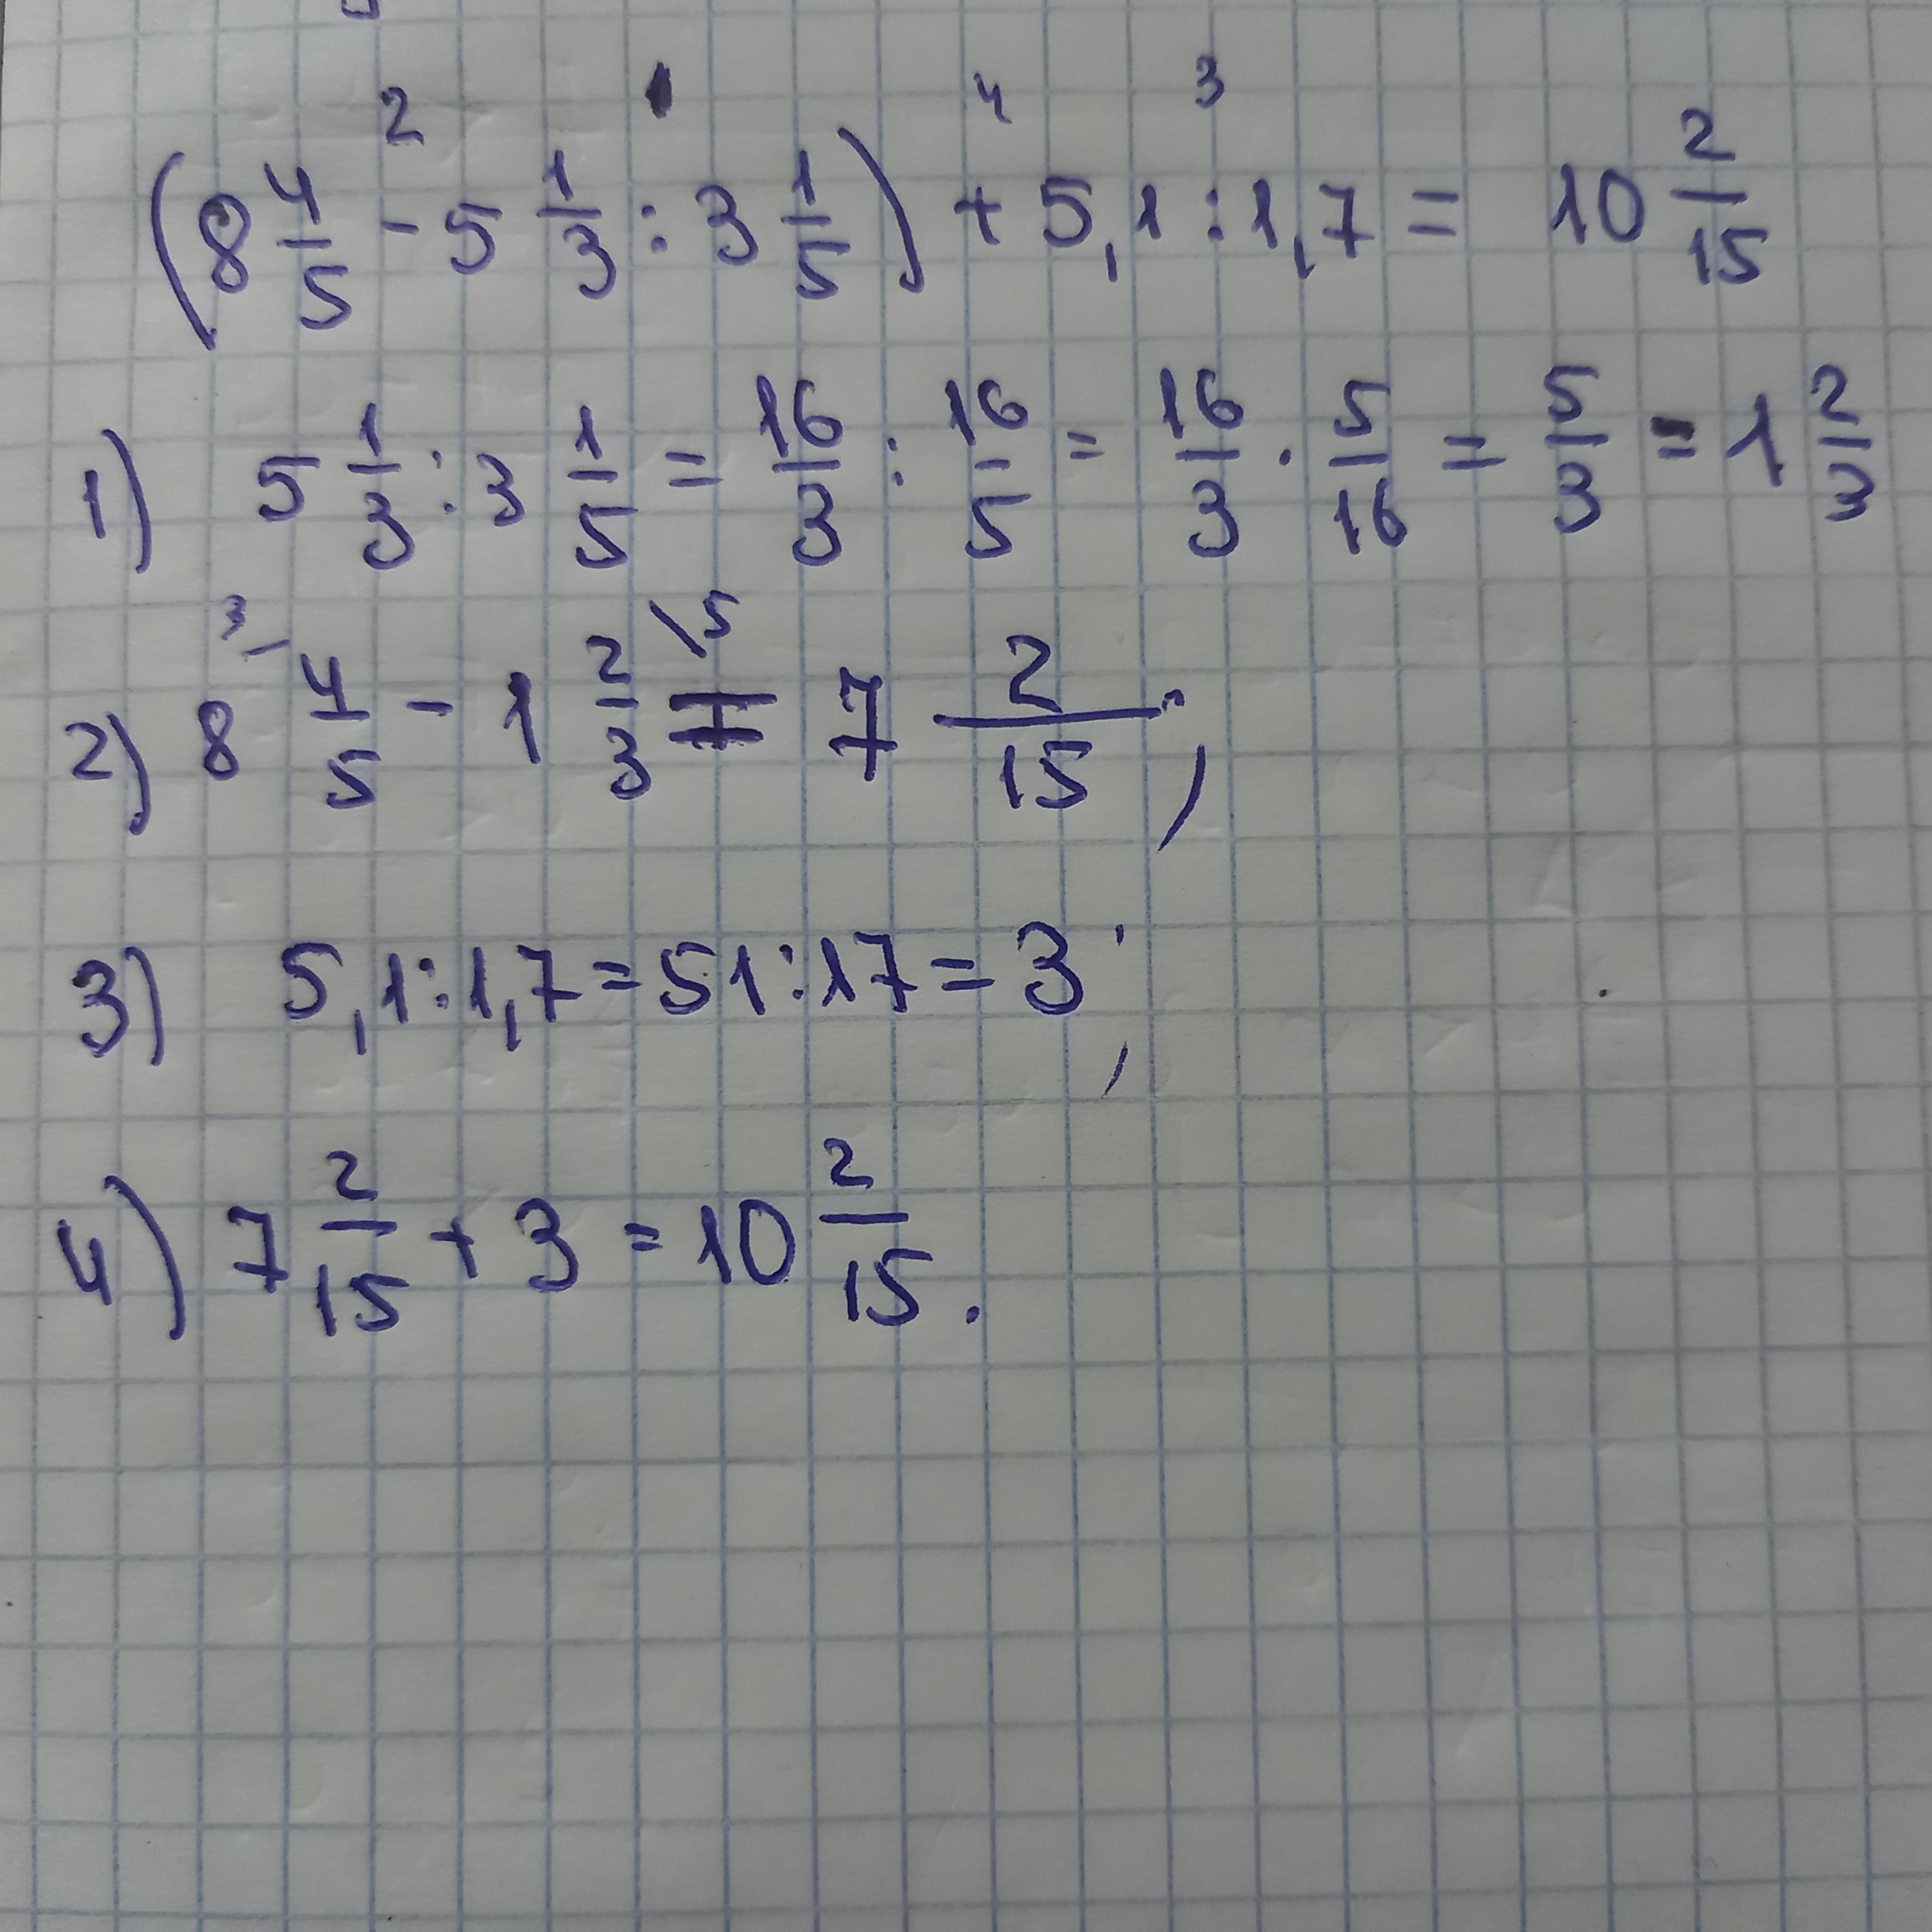 2 1 4 3
(8 4/5 - 5 1/3 : 3 1/5) + 5,1 : 1,7 = 10 2/15
1) 5 1/3 : 3 1/5 = 16/3 : 16/5 = 16/3 · 5/16 = 5/3 = 1 2/3
2) 8 3/ 4/5 - 1 2/3 \5 = 7 2/15;
3) 5,1:1,7=51:17=3;
4) 7 2/15 + 3 = 10 2/15.